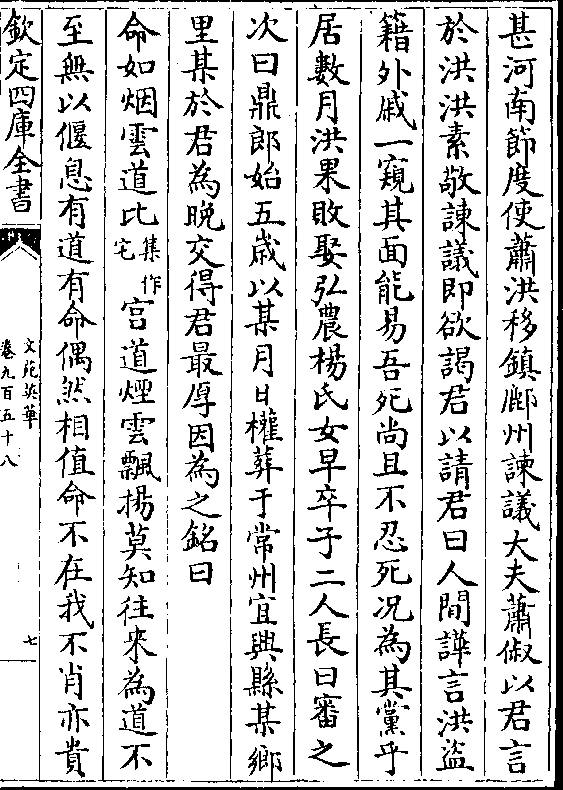 甚河南節度使蕭洪移鎮鄜州諫議大夫蕭俶以君言
於洪洪素敬諫議即欲謁君以請君曰人間譁言洪盜
籍外戚一窺其面能易吾死尚且不忍死况為其黨乎
居數月洪果敗娶弘農楊氏女早卒子二人長曰審之
次曰鼎郎始五歳以某月日權葬于常州宜興縣某鄉
里某於君為晚交得君最厚因為之銘曰
命如烟雲道比集作宅宫道煙雲飄揚莫知往來為道不
至無以偃息有道有命偶然相值命不在我不肖亦貴
欽定四庫全書
文苑英華
卷九百五十八
七